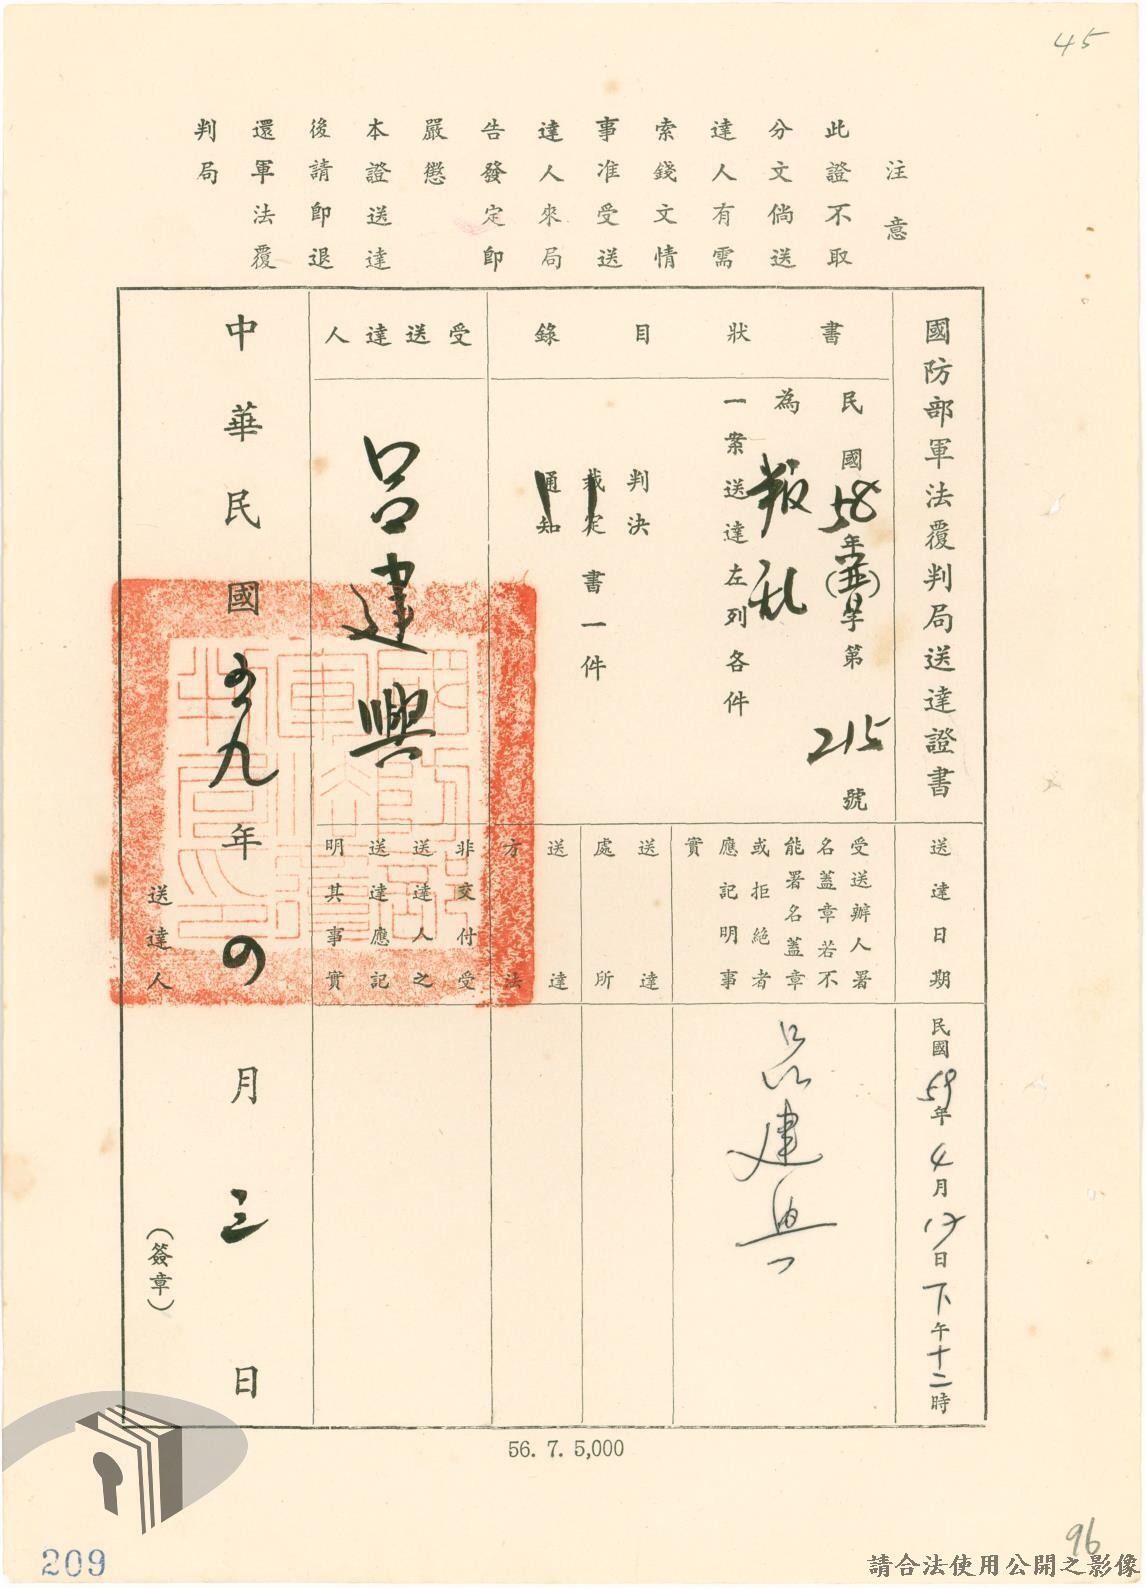 45
注意
此證不取
分文倘送
達人有需
索錢文情
事准受送
達人來局
告發定即
嚴懲
本證送達
後請即退
還軍法覆
判局
國防部軍法覆判局送達證書
書狀目錄
民國58年 第215號
為叛乱
一案送達左列各件
判決
裁定書一件
通知
受送達人
呂建興
送達日期
民國59年4月17日下午十二時
受送辦人署
名蓋章若不
能署名蓋章
或拒絕者
應記明事
實
呂建興
送達
處所
送達
方法
非交付受
送達人之
送達應記
明其事實
中華民國五九年四月三日
送達人
(簽章)
56. 7. 5,000
209
96
請合法使用公開之影像